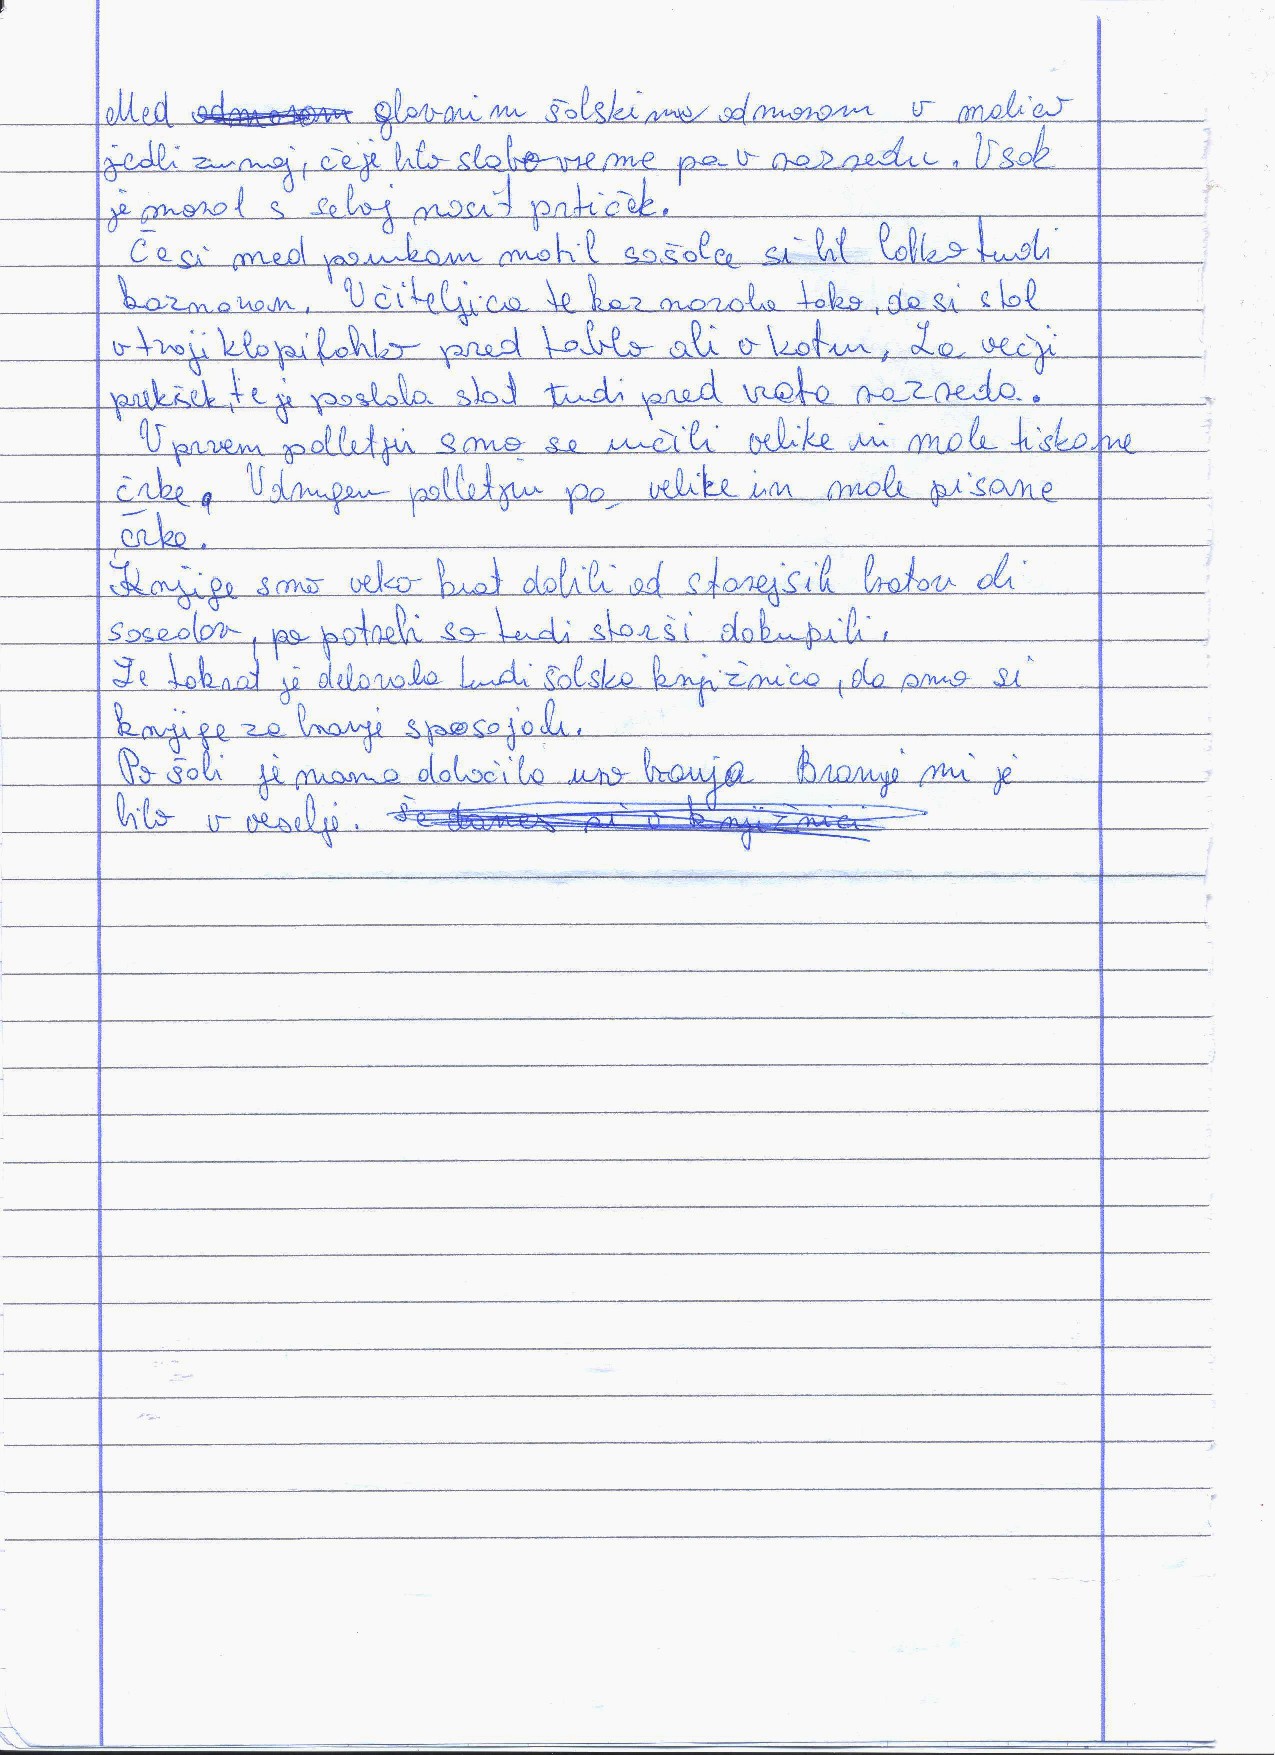 Med odmorom glavnim šolskim odmorom v malico
jedli zunaj, če je blo slabo vreme pa v razredu. Vsak
je moral s seboj nosit prtiček.
Če si med poukam motil sošolce si bil lohko tudi
kaznovan. Učiteljica te kaznovala tako, da si stal
v tvoji klopi, lohko pred tablo ali v kotu, Za večji
prekšek, te je poslala stat tudi pred vrata razreda.
V prvem polletju smo se učili velike in male tiskane
črke. V drugem polletju pa velike in male pisane
črke.
Knjige smo velko krat dobili od starejših bratov ali
sosedov, po potrebi so tudi starši dokupili.
Že takrat je delovala tudi šolska knjižnica, da smo si
knjige za branje sposojali.
Po šoli je mama določila uro branja Branje mi je
bilo v veselje. Še danes si v knjižnici